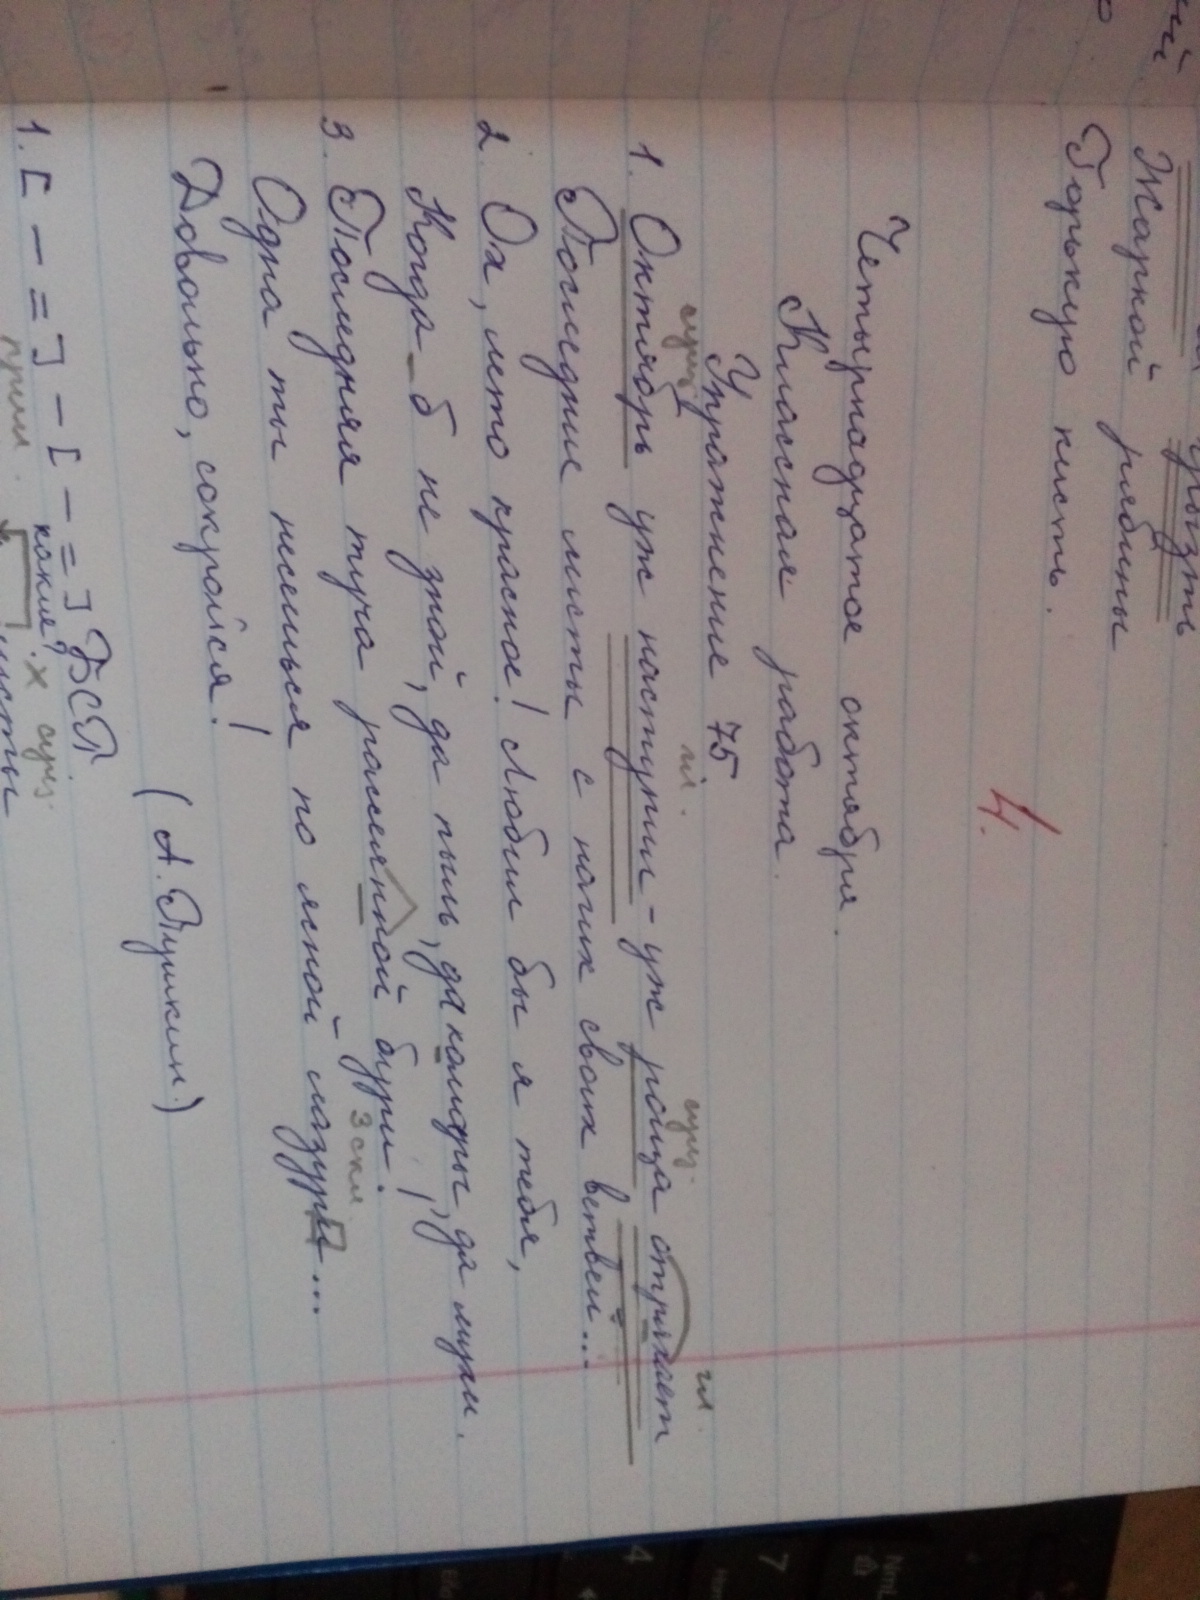 грызть
Жаркой рябины
Горькую кисть.
4.
Четырнадцатое октября.
Классная работа.
Упражнение 75
сущ. гл. сущ. гл.
1. Октябрь уж наступил - уж роща отряхает
Последние листы с нагих своих ветвей...
2. Ох, лето красное! Любил бы я тебя,
Когда б не зной, да пыль, да комары, да мухи.
3. Последняя туча рассеянной бури!
3 скл.
Одна ты несёшься по ясной лазури...
Довольно, сокройся!
(А. Пушкин.)
1. [ — = ] - [ — = ] БСП.
прил. какие? х сущ.
листы
Num
7
4